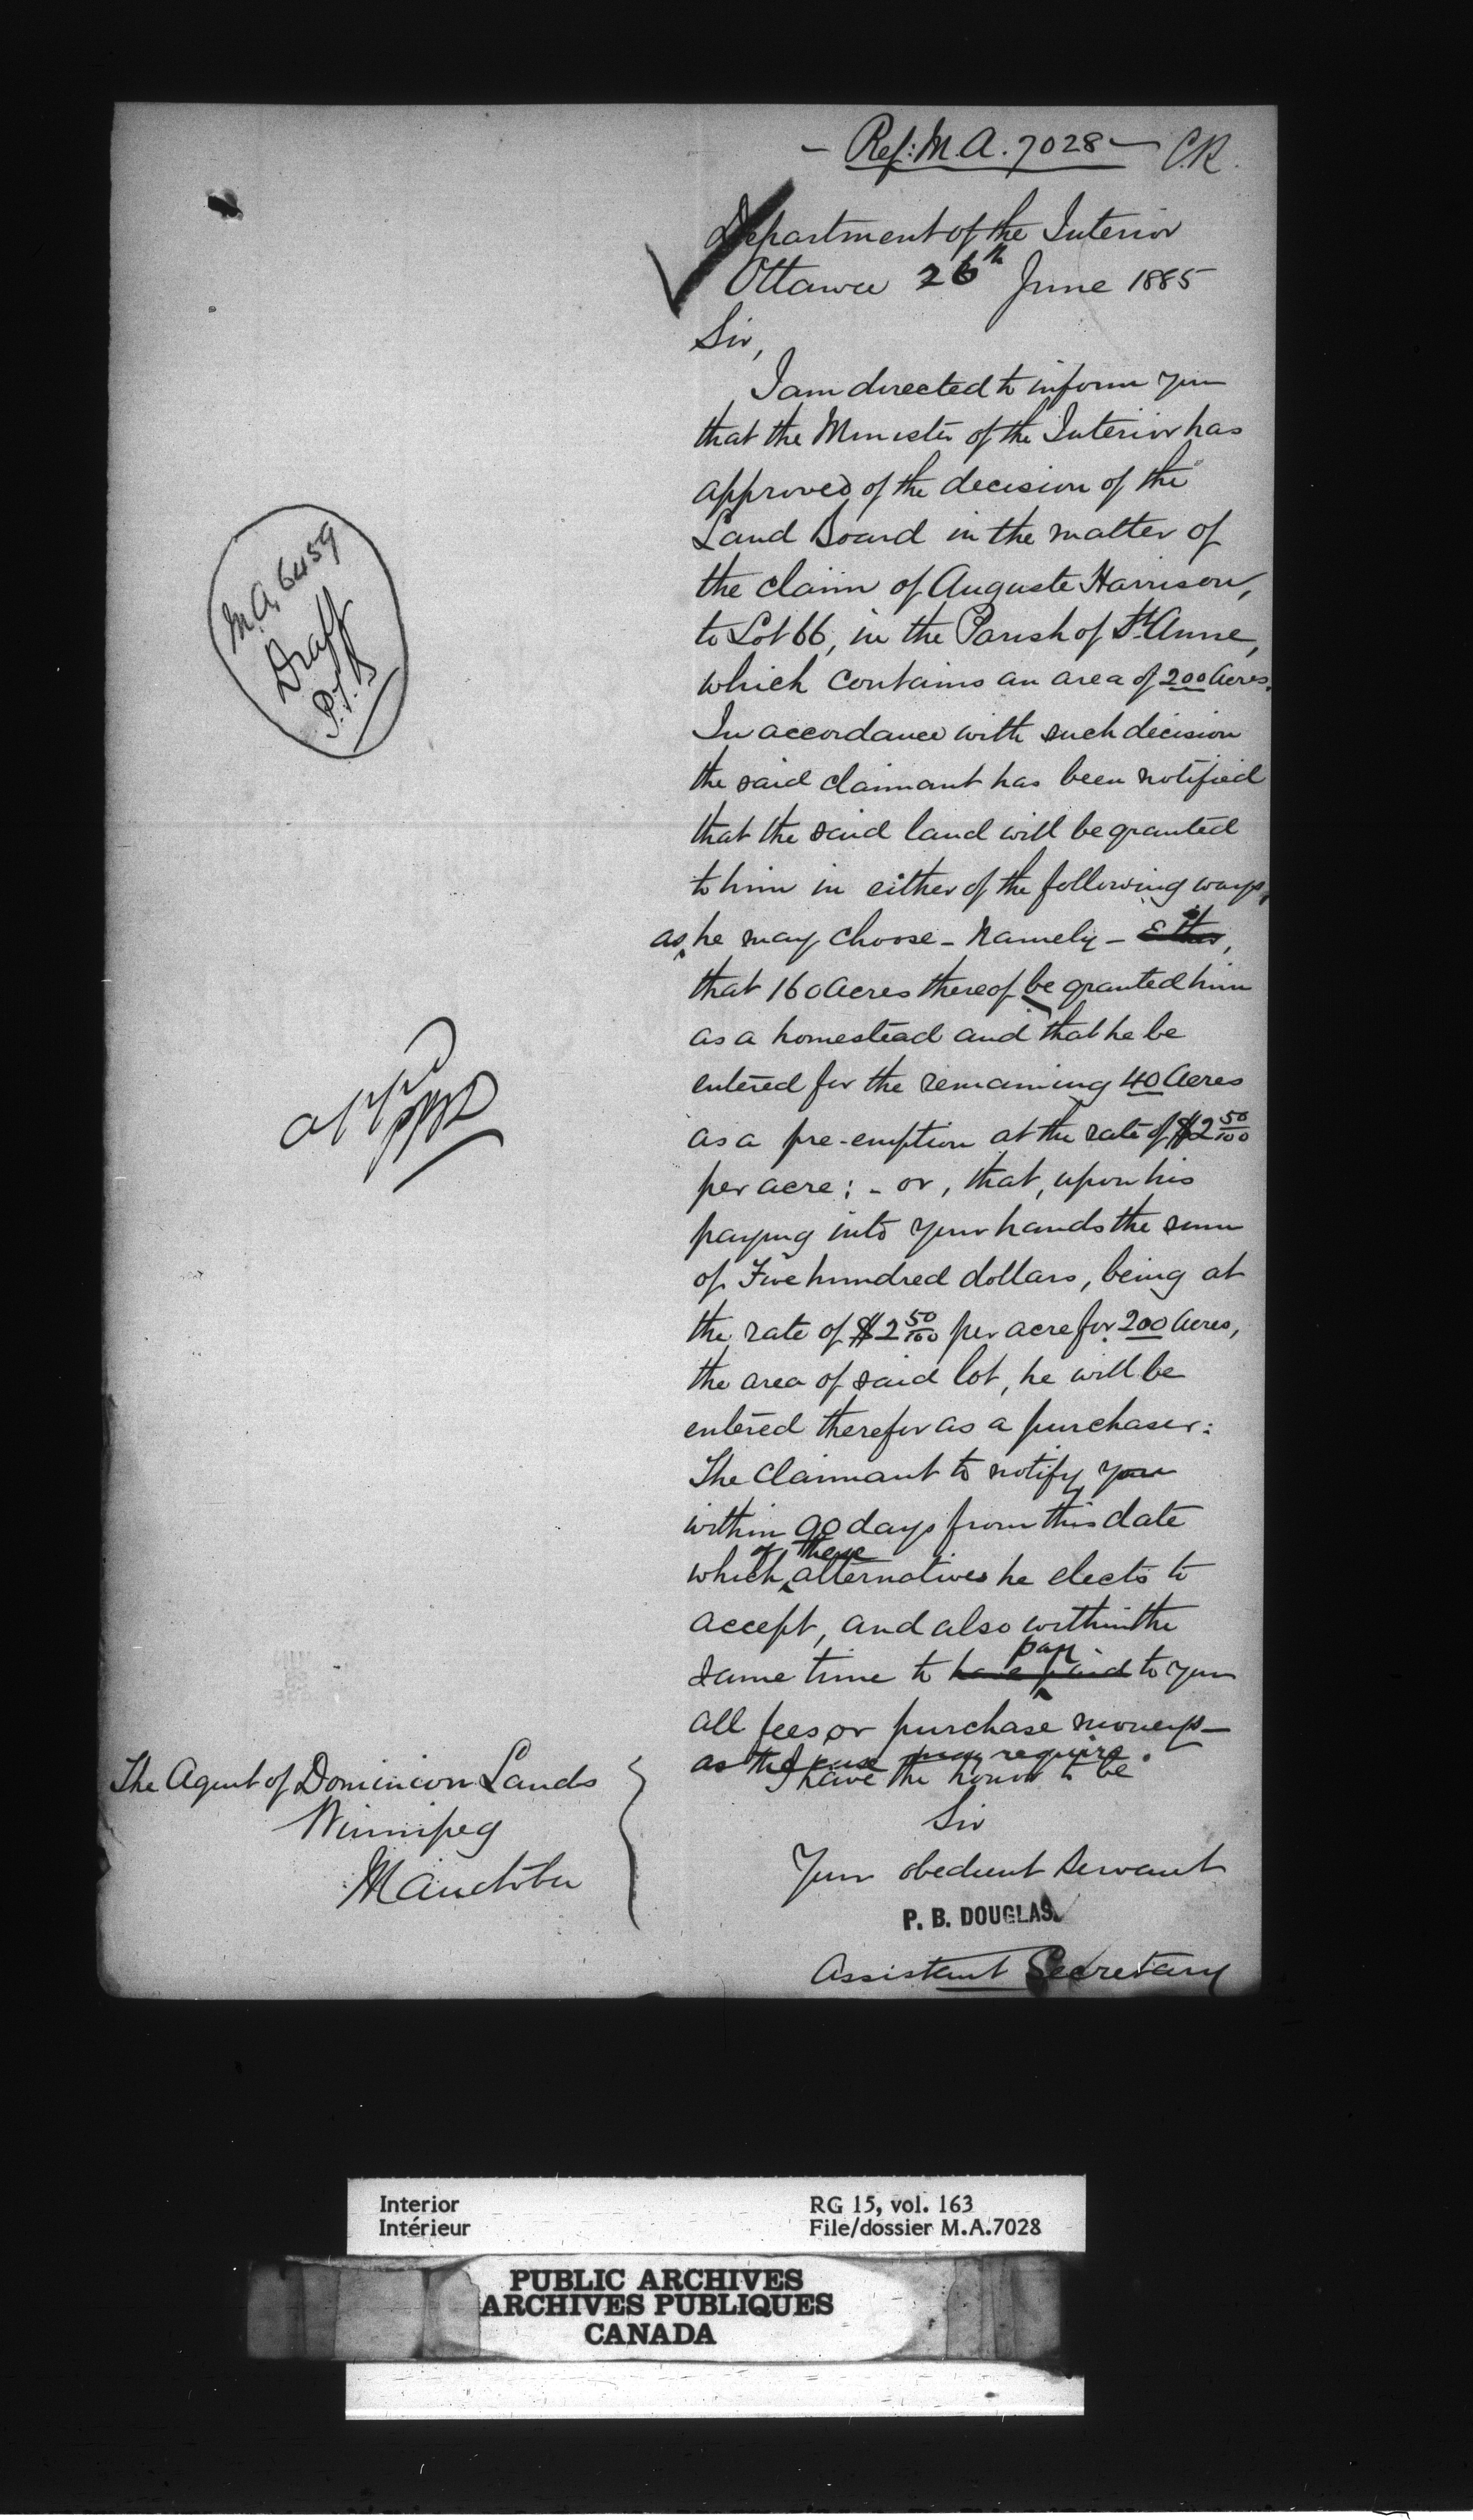 - Ref: M.A. 7028 - C.R.
Department of the Interior
Ottawa 26th June 1885
Sir,
I am directed to inform you
that the Minister of the Interior has
approved of the decision of the
Land Board in the matter of
the claim of Auguste Harrison,
to Lot 66, in the Parish of St. Anne,
which contains an area of 200 acres.
In accordance with such decision
the said claimant has been notified
that the said land will be granted
to him in either of the following ways,
as he may choose - Namely - Either,
that 160 acres thereof be granted him
as a homestead and that he be
entered for the remaining 40 acres
as a pre-emption at the rate of $2 50/100
per acre; - or, that, upon his
paying into your hands the sum
of Five hundred dollars, being at
the rate of $2 50/100 per acre for 200 acres,
the area of said lot, he will be
entered therefor as a purchaser:
The Claimant to notify you
within 90 days from this date
which of these alternatives he elects to
accept, and also within the
same time to have paid pay to you
all fees or purchase moneys -
as the case may require.
I have the honor to be
Sir
Your obedient Servant
P. B. DOUGLAS.
Assistant Secretary
The Agent of Dominion Lands
Winnipeg
Manitoba
M.A. 6459
Draft
Interior
Intérieur
RG 15, vol. 163
File/dossier M.A.7028
PUBLIC ARCHIVES
ARCHIVES PUBLIQUES
CANADA